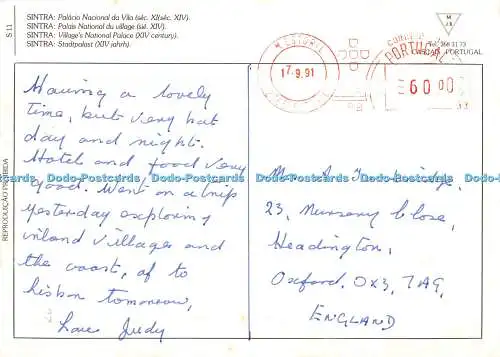 SINTRA: Palácio Nacional da Vila (séc. XI(séc. XIV).
SINTRA: Palais National du village (sié. XIV).
SINTRA: Village's National Palace (XIV century).
SINTRA: Stadtpalast (XIV jahrh).
S 11
REPRODUÇÃO PROIBIDA
PORTUGAL
17.9.91
60,00
Having a lovely
time, but very hot
day and night.
Hotel and food very
good. Went on a trip
yesterday exploring
inland villages and
the coast, of to
Lisbon tomorrow,
Love Judy
23, Nursery Close,
Headington,
Oxford. OX3, 7AG,
ENGLAND
Dodo-Postcards Dodo-Postcards Dodo-Postcards Dodo-Postcards